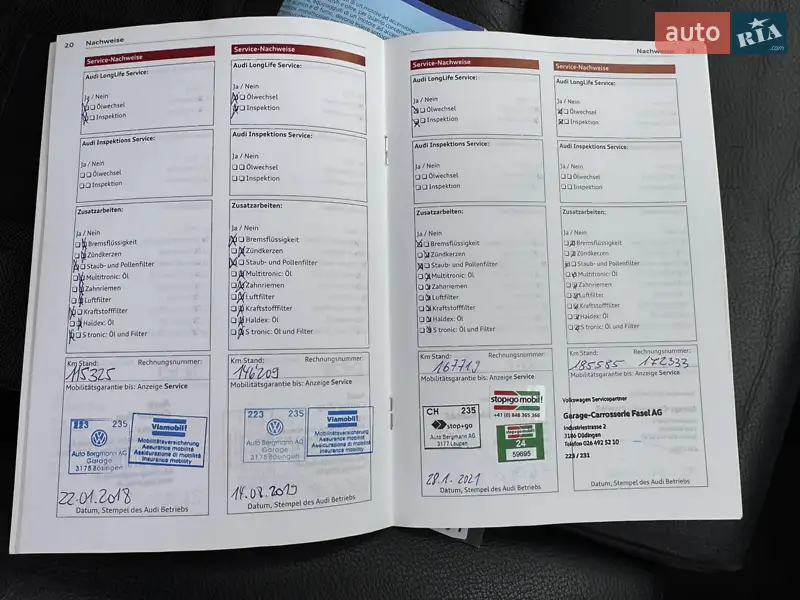 20 Nachweise
Service-Nachweise
Audi LongLife Service:
Ja / Nein
Ölwechsel
Inspektion
Audi Inspektions Service:
Ja / Nein
Ölwechsel
Inspektion
Zusatzarbeiten:
Ja / Nein
Bremsflüssigkeit
Zündkerzen
Staub- und Pollenfilter
Multitronic: Öl
Zahnriemen
Luftfilter
Kraftstofffilter
Haldex: Öl
S tronic: Öl und Filter
Km Stand: Rechnungsnummer:
115325
Mobilitätsgarantie bis: Anzeige Service
223 235
Auto Bergmann AG
Garage
3178 Bösingen
Viamobil!
Mobilitätsversicherung
Assurance mobilité
Assicurazione di mobilità
Insurance mobility
22.01.2018
Datum, Stempel des Audi Betriebs
Service-Nachweise
Audi LongLife Service:
Ja / Nein
Ölwechsel
Inspektion
Audi Inspektions Service:
Ja / Nein
Ölwechsel
Inspektion
Zusatzarbeiten:
Ja / Nein
Bremsflüssigkeit
Zündkerzen
Staub- und Pollenfilter
Multitronic: Öl
Zahnriemen
Luftfilter
Kraftstofffilter
Haldex: Öl
S tronic: Öl und Filter
Km Stand: Rechnungsnummer:
146209
Mobilitätsgarantie bis: Anzeige Service
223 235
Auto Bergmann AG
Garage
3178 Bösingen
Viamobil!
Mobilitätsversicherung
Assurance mobilité
Assicurazione di mobilità
Insurance mobility
14.08.2019
Datum, Stempel des Audi Betriebs
Nachweise 21
Service-Nachweise
Audi LongLife Service:
Ja / Nein
Ölwechsel
Inspektion
Audi Inspektions Service:
Ja / Nein
Ölwechsel
Inspektion
Zusatzarbeiten:
Ja / Nein
Bremsflüssigkeit
Zündkerzen
Staub- und Pollenfilter
Multitronic: Öl
Zahnriemen
Luftfilter
Kraftstofffilter
Haldex: Öl
S tronic: Öl und Filter
Km Stand: Rechnungsnummer:
167719
Mobilitätsgarantie bis: Anzeige Service
CH 235
stop+go
Auto Bergmann AG
3177 Laupen
stop+go mobil!
+41 (0) 848 365 366
24
59695
28.1.2021
Datum, Stempel des Audi Betriebs
Service-Nachweise
Audi LongLife Service:
Ja / Nein
Ölwechsel
Inspektion
Audi Inspektions Service:
Ja / Nein
Ölwechsel
Inspektion
Zusatzarbeiten:
Ja / Nein
Bremsflüssigkeit
Zündkerzen
Staub- und Pollenfilter
Multitronic: Öl
Zahnriemen
Luftfilter
Kraftstofffilter
Haldex: Öl
S tronic: Öl und Filter
Km Stand: Rechnungsnummer:
185585 172333
Mobilitätsgarantie bis: Anzeige Service
Volkswagen Servicepartner
Garage-Carrosserie Fasel AG
Industriestrasse 2
3186 Düdingen
Telefon 026 492 52 10
223 / 231
Datum, Stempel des Audi Betriebs
auto RIA .com